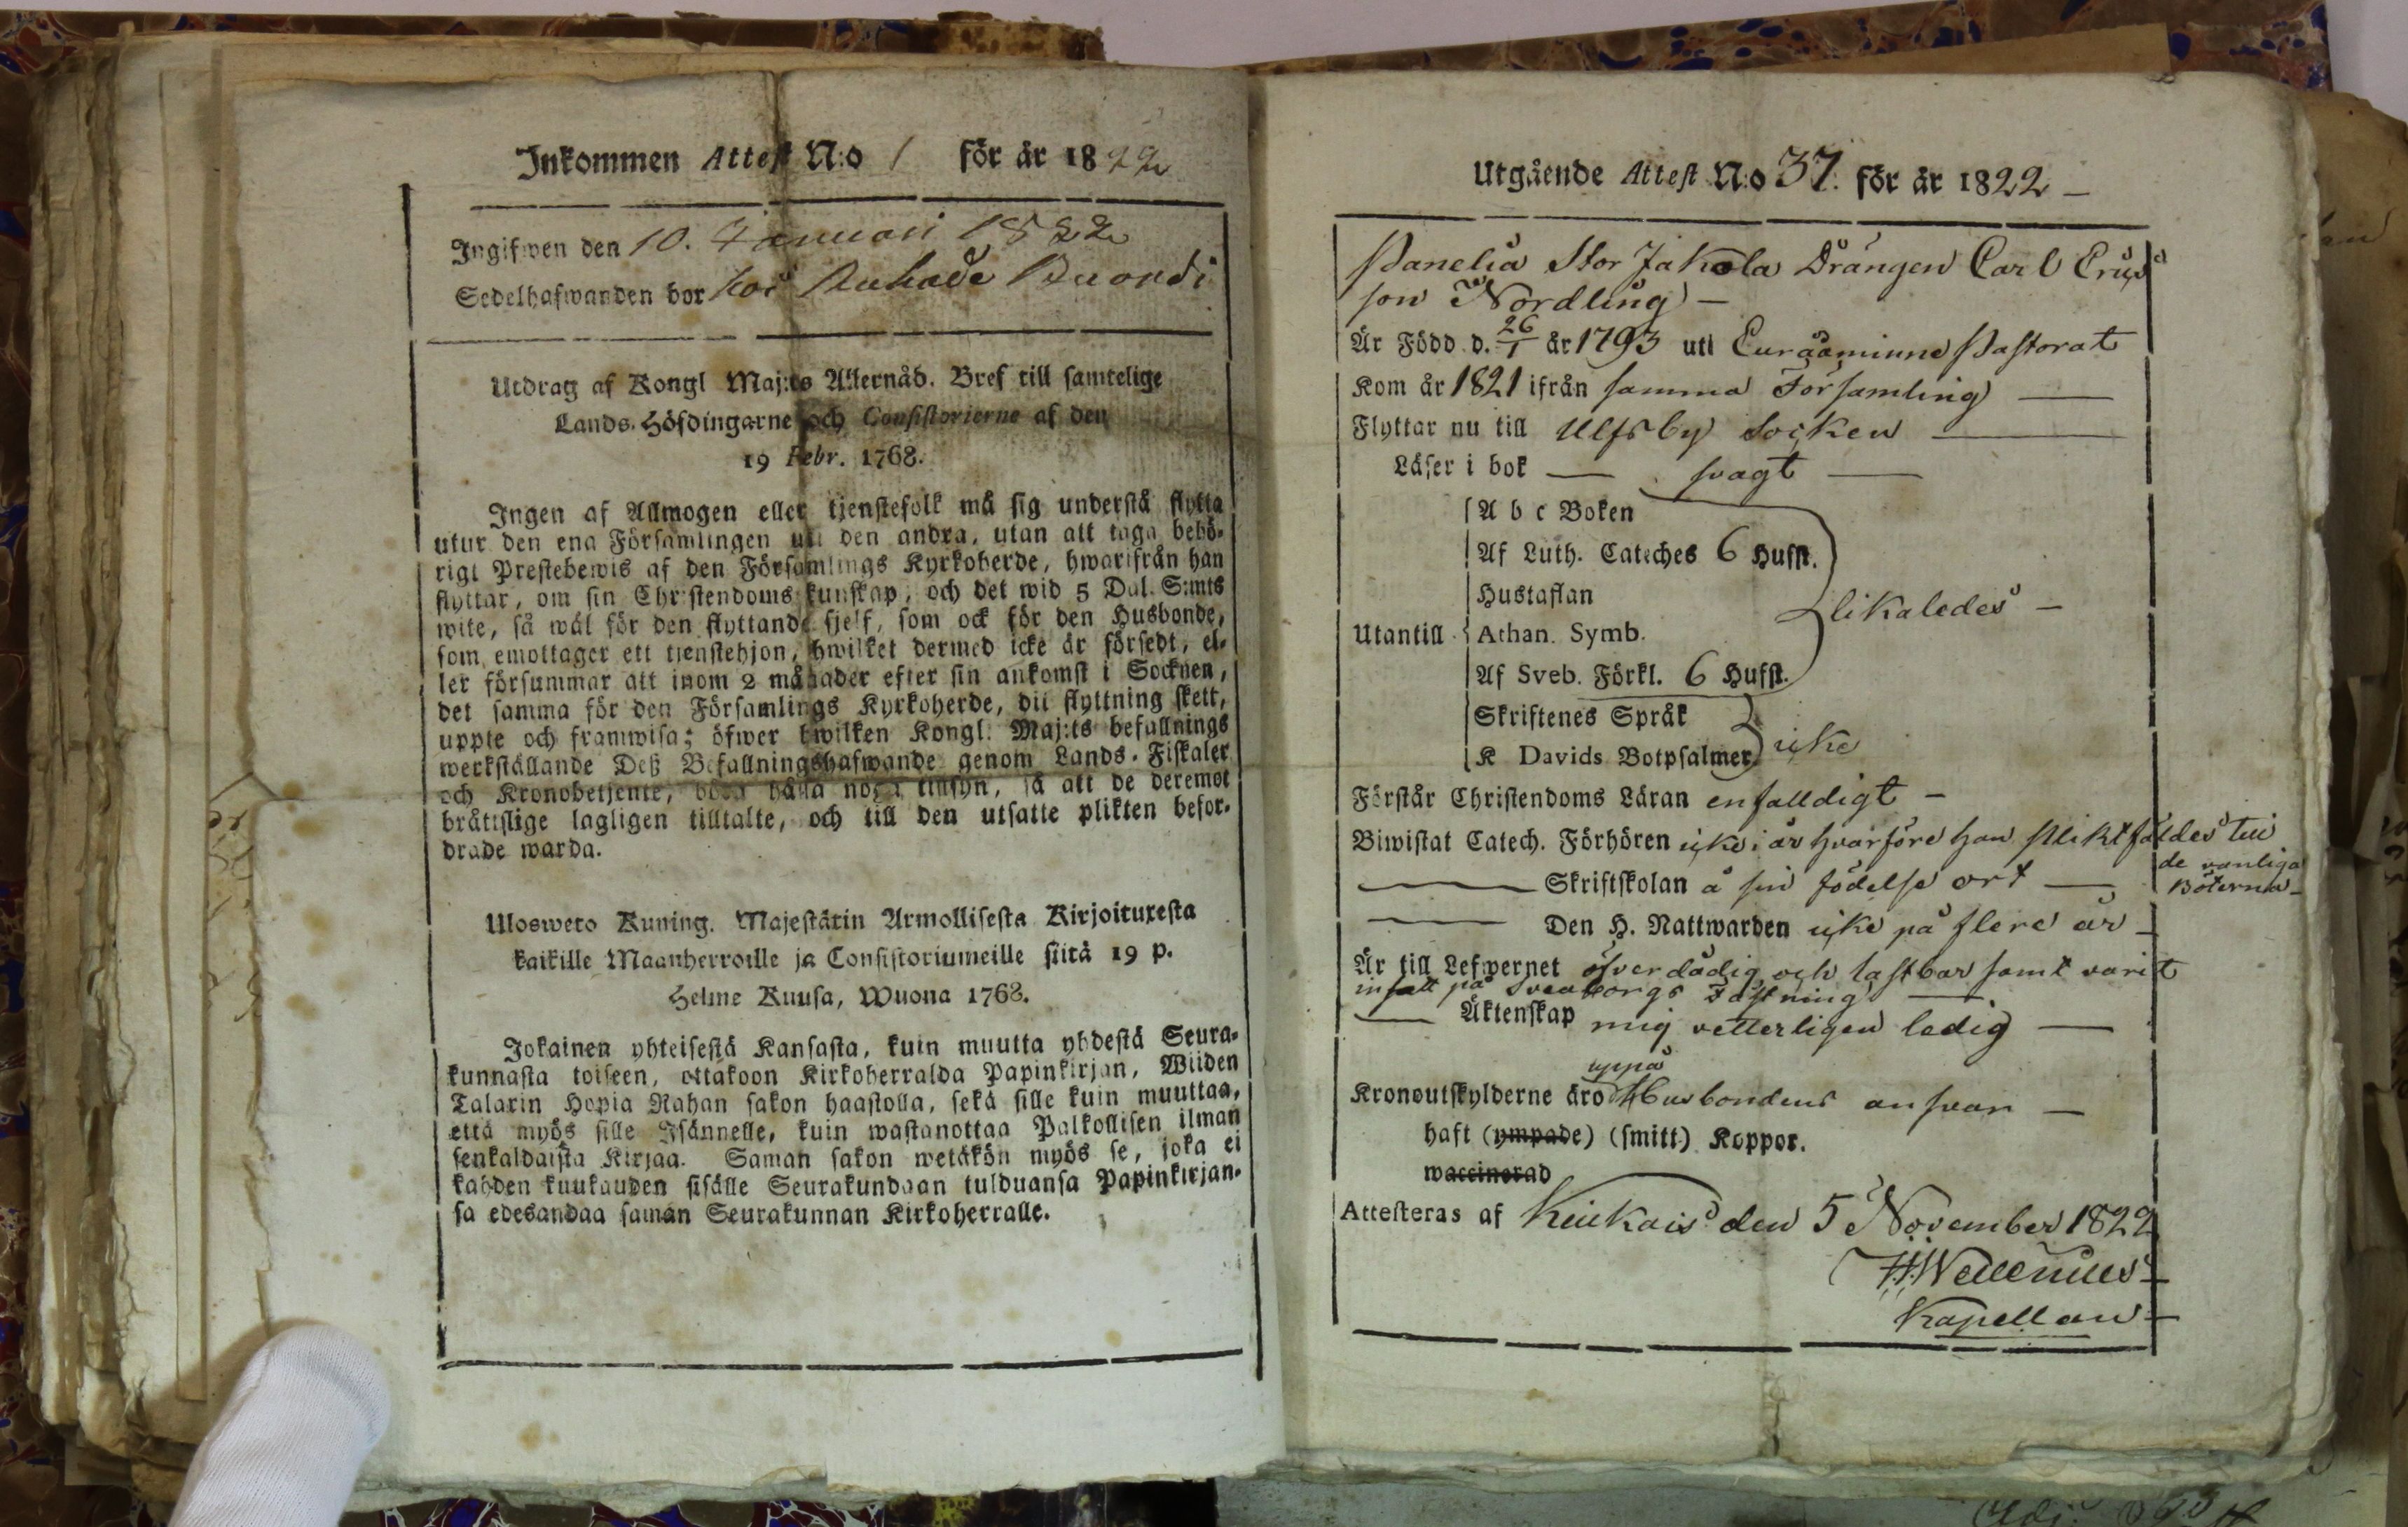 Inkommen Attest N:o 1 för år 1822
Ingifwen den 10. Januari 1822
Sedelhafwanden bor hos Ruhade Buordi
Utdrag af Kongl Maj:ts Allernåd. Bref till samtelige
Lands-Höfdingarne och Consistorierne af den
19 Febr. 1768.
Ingen af Allmogen eller tjenstefolk må sig understå flytta
utur den ena Församlingen uti den andra, utan att taga behö-
rigt Prestebewis af den Församlings Kyrkoherde, hwarifrån han
flyttar, om sin Christendoms kunskap, och det wid 5 Dal. S:mts
wite, så wäl för den flyttande sjelf, som ock för den Husbonde,
som emottager ett tjenstehjon, hwilket dermed icke är försedt, el-
ler försummar att inom 2 månader efter sin ankomst i Socknen,
det samma för den Församlings Kyrkoherde, dit flyttning skett,
uppte och framwisa; öfwer hwilken Kongl. Maj:ts befallnings
werkställande Deß Befallningshafwande genom Lands-Fiskaler
och Kronobetjente, böra hålla noga tillsyn, så att de deremot
bråttslige lagligen tilltalte, och till den utsatte plikten befor-
drade warda.
Ulosweto Kuning. Majestätin Armollisesta Kirjoituxesta
kaikille Maanherroille ja Consistoriumeille siitä 19 p.
Helme Kuusa, Wuona 1768.
Jokainen yhteisestä Kansasta, kuin muutta yhdestä Seura-
kunnasta toiseen, ottakoon Kirkoherralda Papinkirjan, Wiiden
Talarin Hopia Rahan sakon haastolla, sekä sille kuin muuttaa,
että myös sille Isännelle, kuin wastanottaa Palkollisen ilman
senkaldaista Kirjaa. Saman sakon wetäkön myös se, joka ei
kahden kuukauden sisälle Seurakundaan tulduansa Papinkirjan-
sa edesandaa saman Seurakunnan Kirkoherralle.
Utgående Attest N:o 37. för år 1822 –
Panelia Stor Jakola Drängen Carl Ericsson
son Nordling –
Är Född d. 26/1 år 1793 uti Euraåminne Pastorat
Kom år 1821 ifrån samma Församling —
Flyttar nu till Ulfsby Socken —
Läser i bok — svagt —
A b c Boken
Af Luth. Cateches 6 Hufst.
Hustaflan
likaledes –
Utantill Athan. Symb.
Af Sveb. Förkl. 6 Hufst.
Skriftenes Språk
K Davids Botpsalmer icke
Förstår Christendoms Läran enfalldigt –
Biwistat Catech. Förhören icke i år hvarföre han pliktfäldes till
de vanliga
Böterna –
— Skriftskolan å sin födelse ort —
— Den H. Nattwarden icke på flere år –
Är till Lefwernet öfverdådig och lastbar samt varit
insatt på Sveaborgs Fästning —
— Äktenskap mig vetterligen ledig —
uppå
Kronoutskylderne äro Husbondens ansvar —
haft (ympade) (smitt) Koppor.
waccinerad
Attesteras af Keukais den 5 November 1822
Kapellan –